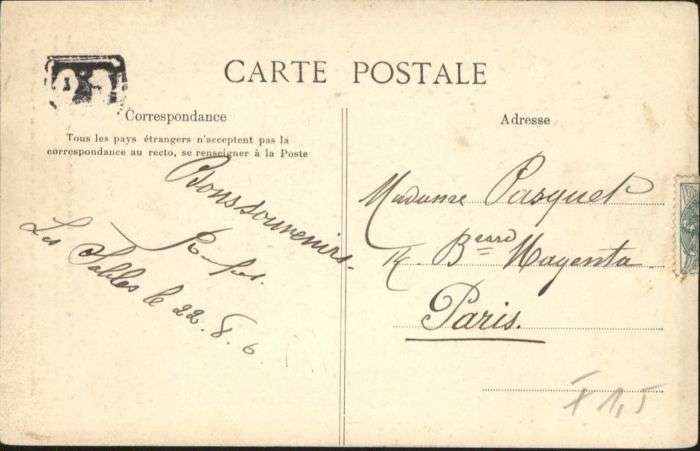 CARTE POSTALE
Correspondance
Tous les pays étrangers n'acceptent pas la
correspondance au recto, se renseigner à la Poste
Bons souvenirs.
Les Sables le 22. 8. 6
Adresse
Madame Pasquet
Bard Magenta
Paris.
1,5